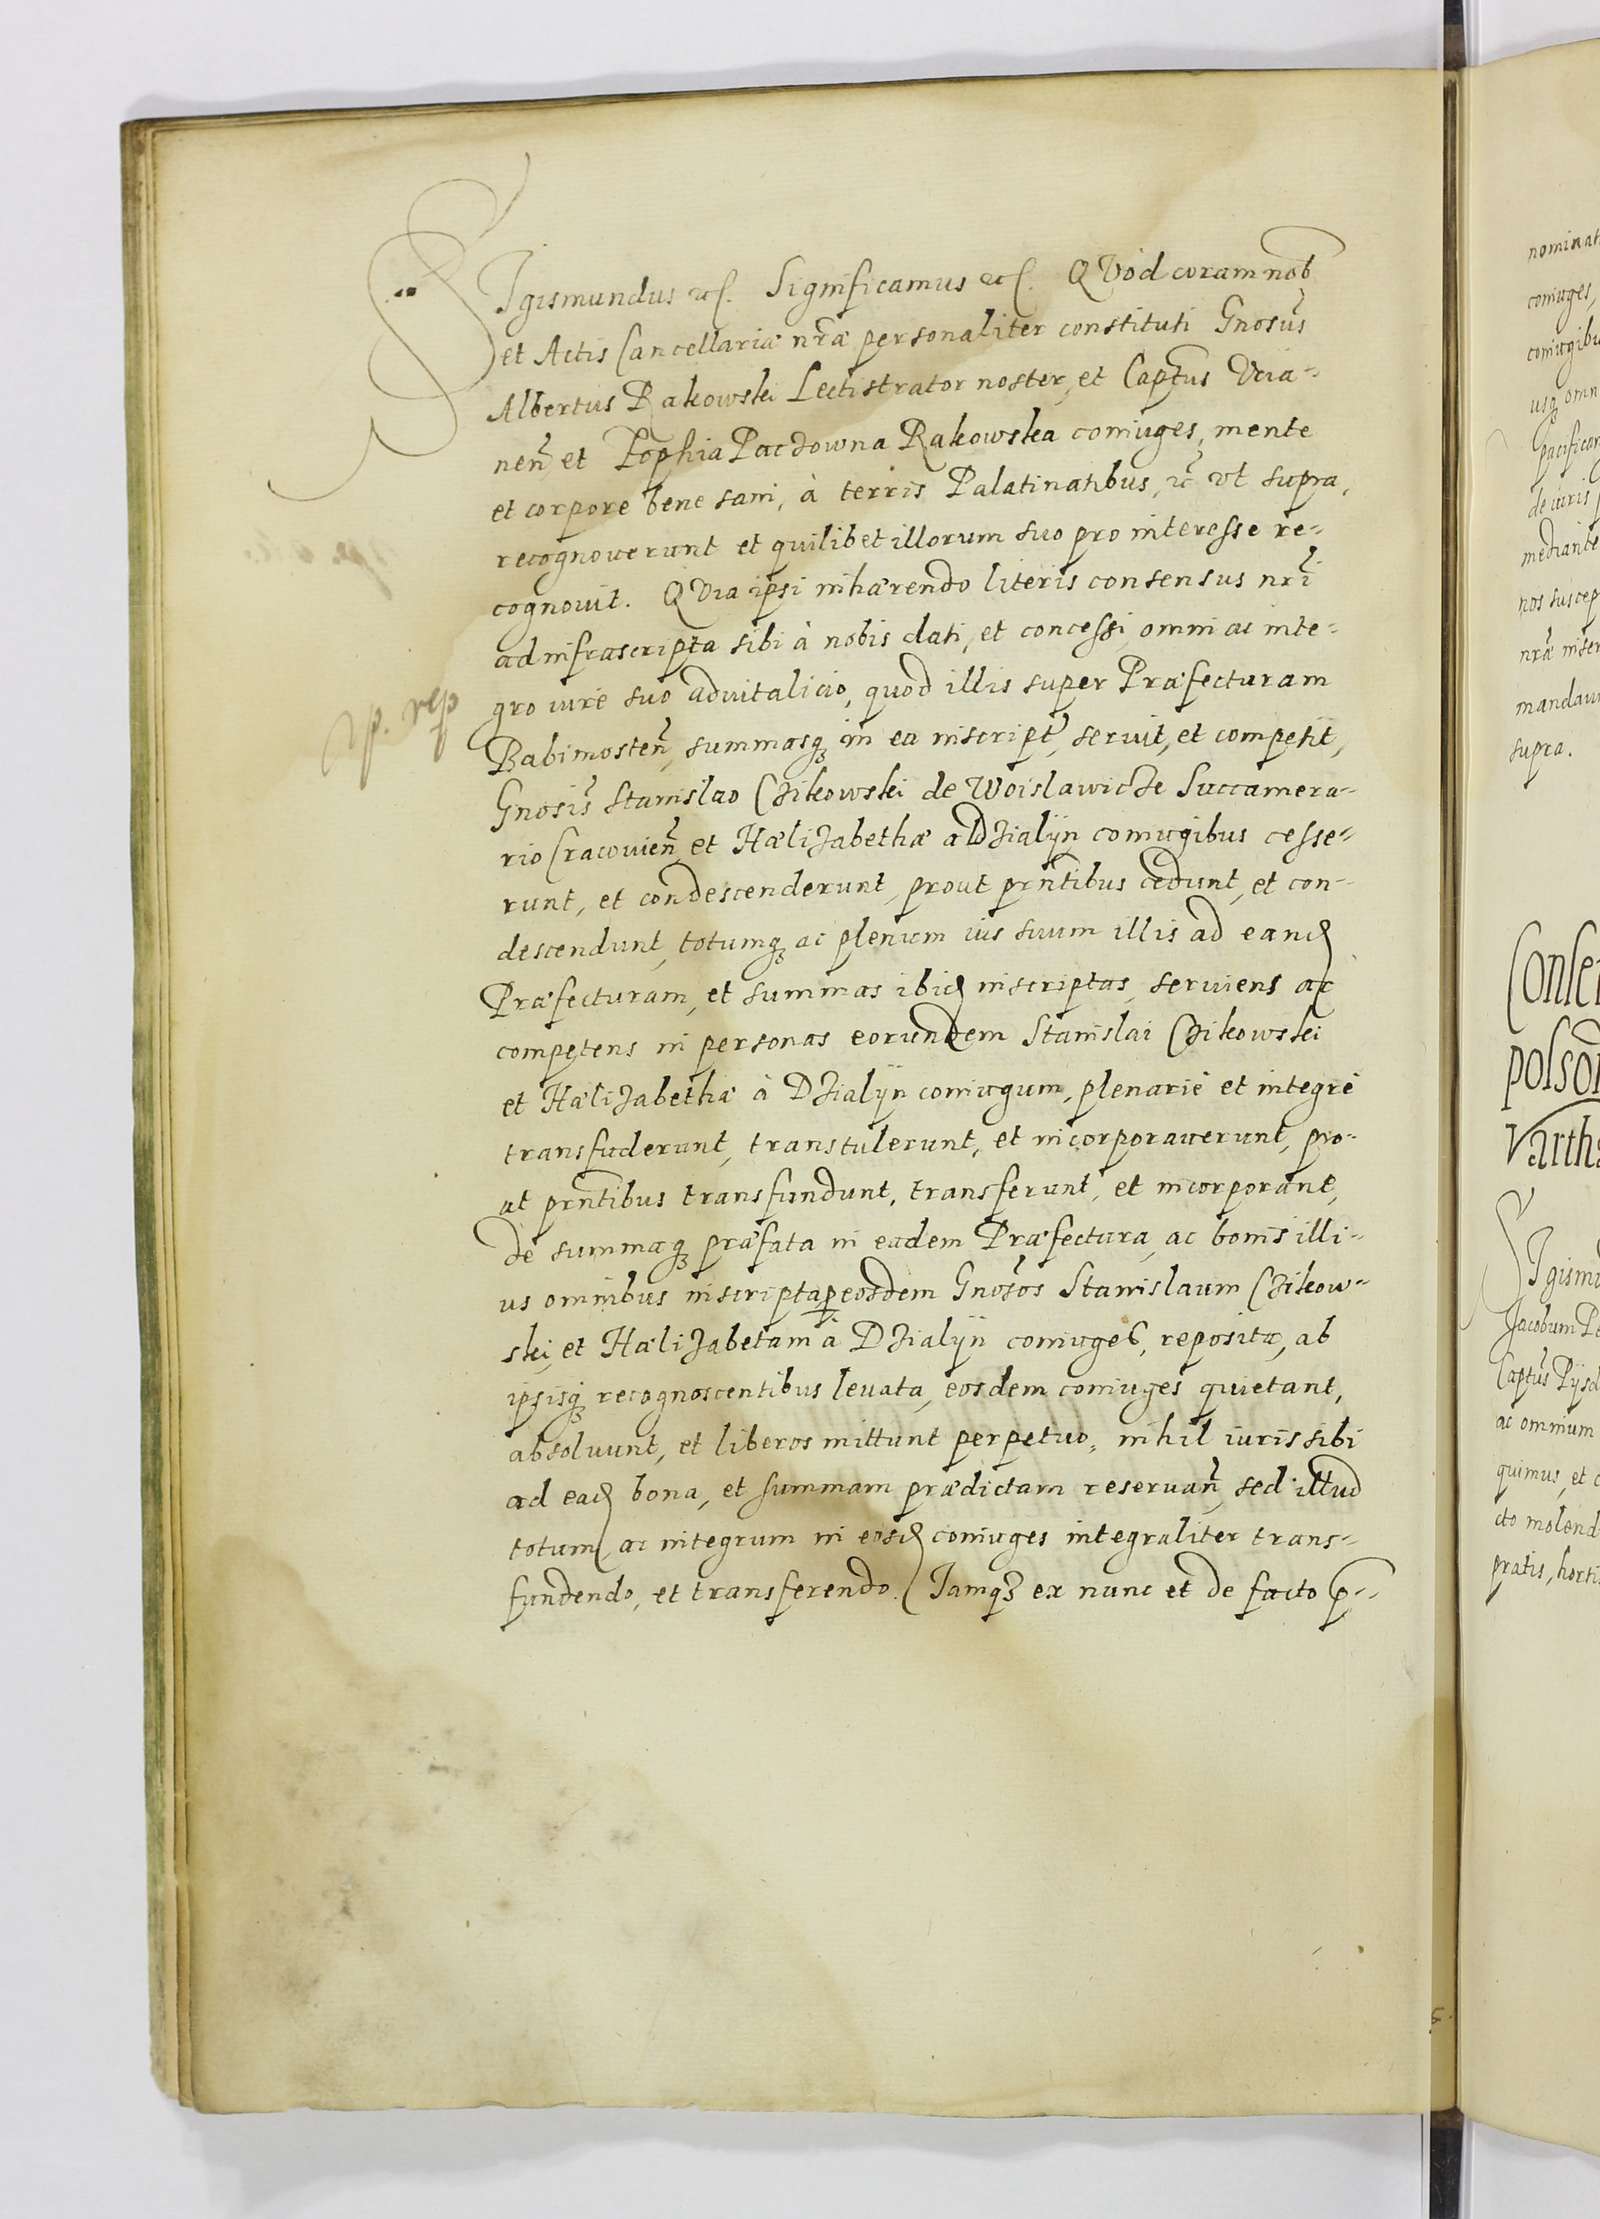 SIgismundus etc. Significamus etc. QVòd coram nob
et Actis Cancellariæ nr̃æ personaliter constituti Gnosus̃
Albertus Rakowski Lectistrator noster, et Captus Vcia-
nen̄, et Zophia Paczowna Rakowska coniuges, mente
et corpore bene sani, à terris Palatinatibus, etc̃ vt supra,
recognouerunt et quilibet illorum suo pro interesse re-
cognouit. QVia ipsi inhærendo literis consensus nr̃i
ad infrascripta sibi à nobis dati, et concessi, omni ac inte-
gro iure suo aduitalicio, quod illis super Præfecturam
Babimosten̄, summasq́ȝ in ea inscript̃, seruit, et competit,
Gnosis̃ Stanislao Czikowski de Woislawicze Succamera-
rio Cracouien̄ et Hælizabethæ a Dzialÿn coniugibus cesse-
runt, et condescenderunt, prout prñtibus cedunt, et con-
descendunt, totumqȝ ac plenum ius suum illis ad eand
Præfecturam, et summas ibid inscriptas, seruiens ac
competens in personas eorundem Stanislai Czikowski
et Hælizabethæ à Dzialÿn coniugum, plenariè et integrè
transfuderunt, transtulerunt, et incorporauerunt, pro-
ut prñtibus transfundunt, transferunt, et incorporant,
de summaqȝ præfata in eadem Præfectura, ac bonis illi-
us omnibus inscripta per eosdem Gnosos̃ Stanislaum Czikow-
ski, et Hælizabetam à Dzialÿn coniuges, reposita, ab
ipsisqȝ recognoscentibus leuata, eosdem coniuges quietant,
absoluunt, et liberos mittunt perpetuo, nihil iuris sibi
ad ead bona, et summam prædictam reseruan̄, sed illud
totum, ac integrum in eosd coniuges integraliter trans-
fundendo, et transferendo. Iamqȝ ex nunc et de facto p-
nominat
coniuges,
coniugibu
usqȝ omn
pacifican
de iuris
mediante
nos suscep
nr̃æ inser
mandaui
supra.
Consen
polso
Varth
SIgismu
Jacobum
Captus̃ Pÿsd
ac omnium
quimus, et
cto molend
pratis, horti